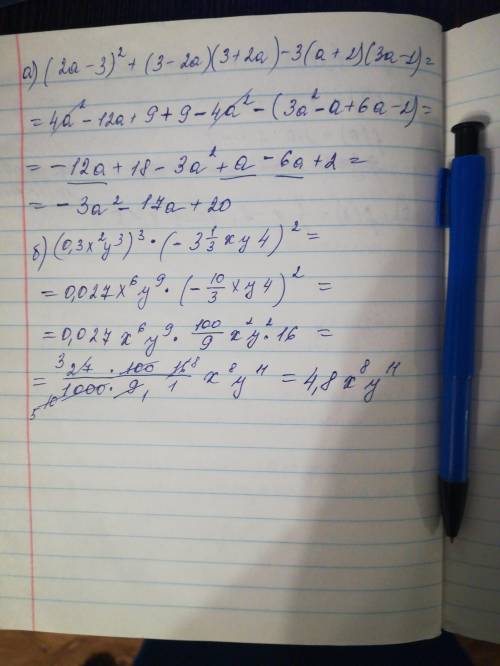 а) (2a-3)² + (3-2a)(3+2a)-3(a+2)(3a-1)=
= 4a² - 12a + 9 + 9 - 4a² - (3a² - a + 6a - 2) =
= - 12a + 18 - 3a² + a - 6a + 2 =
= - 3a² - 17a + 20
б) (0,3x²y³)³ · (- 3 1/3 xy4)² =
= 0,027x⁶y⁹ · (- 10/3 xy4)² =
= 0,027 x⁶y⁹ · 100/9 x²y² · 16 =
= (27 · 100 · 16)/(1000 · 9 · 1) x⁸y¹¹ = 4,8x⁸y¹¹